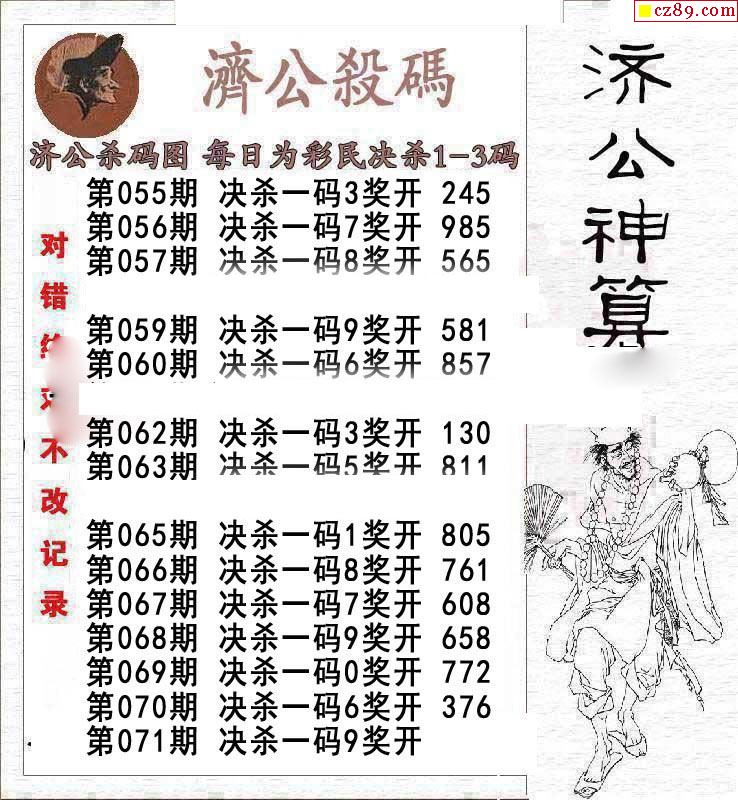 cz89.com
濟公殺碼
济公杀码图 每日为彩民决杀1-3码
第055期 决杀一码3奖开 245
第056期 决杀一码7奖开 985
第057期 决杀一码8奖开 565
第059期 决杀一码9奖开 581
第060期 决杀一码6奖开 857
第062期 决杀一码3奖开 130
第063期 决杀一码5奖开 811
第065期 决杀一码1奖开 805
第066期 决杀一码8奖开 761
第067期 决杀一码7奖开 608
第068期 决杀一码9奖开 658
第069期 决杀一码0奖开 772
第070期 决杀一码6奖开 376
第071期 决杀一码9奖开
对错不改记录
济公神算